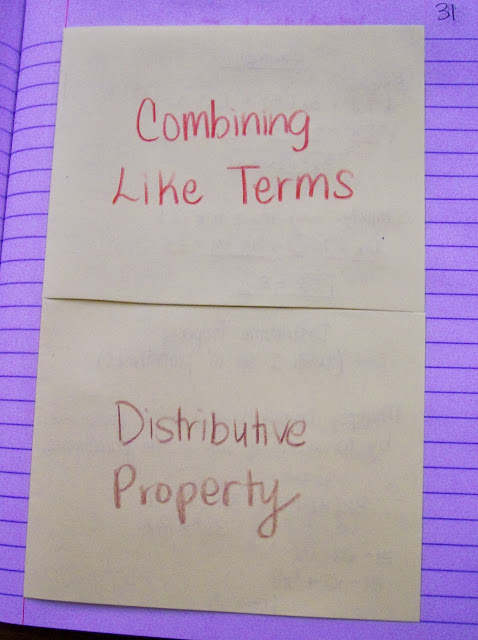 31
Combining
Like Terms
Distributive
Property